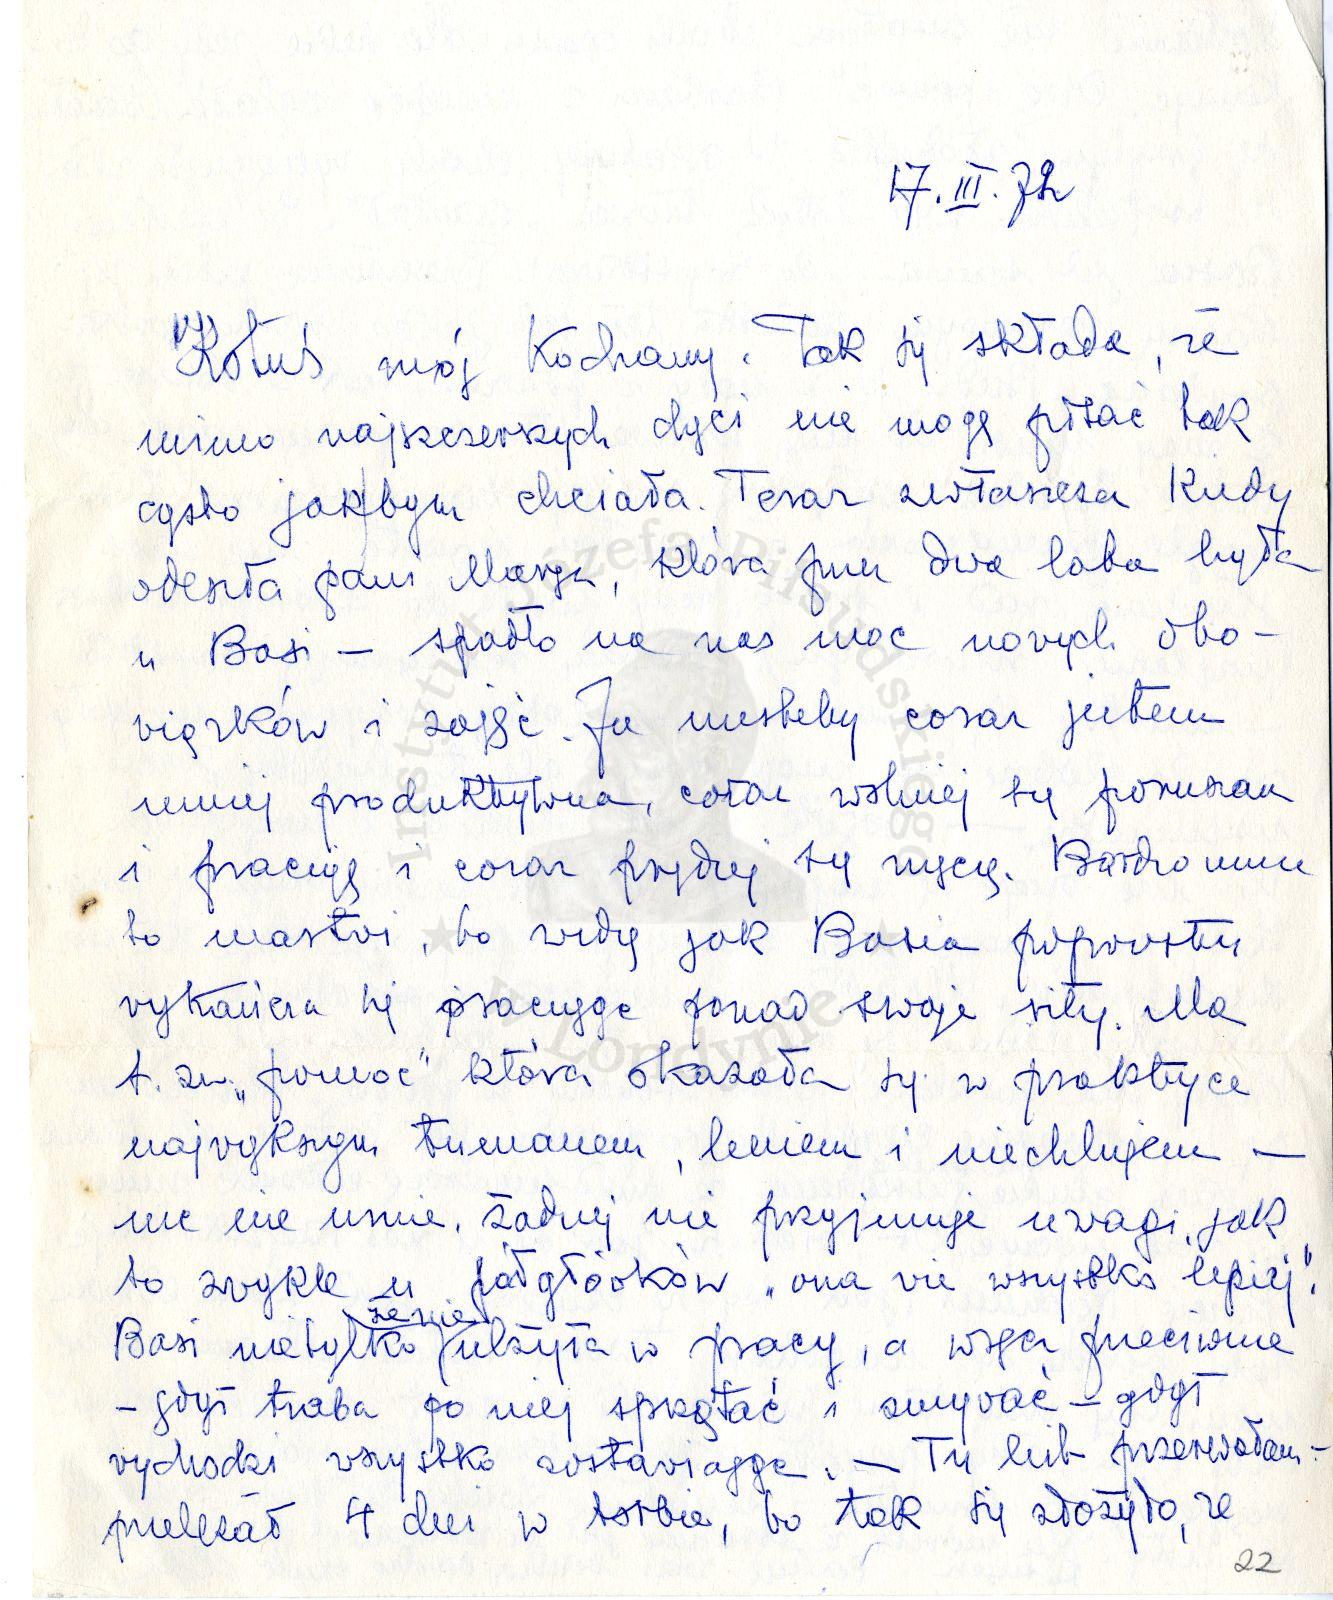 17.III.72
Kotuś mój Kochany. Tak się składa, że
mimo najszczerszych chęci nie mogę pisać tak
często jakbym chciała. Teraz zwłaszcza kiedy
odeszła pani Marysia, która przez dwa lata była
u Basi – spadło na nas moc nowych obo-
wiązków i zajęć. Ja niestety coraz jestem
mniej produktywna, coraz wolniej się poruszam
i pracuję i coraz prędzej się męczę. Bardzo mnie
to martwi, bo widzę jak Basia poprostu
wykańcza się pracując ponad swoje siły. Ma
t. zw. „pomoc" która okazała się w praktyce
największym tumanem, leniem i niechlujem –
nic nie umie, żadnej nie przyjmuje uwagi, jak
to zwykle u półgłówków „ona wie wszystko lepiej".
Basi nietylko że nie ulżyła w pracy, a wręcz przeciwnie
– gdyż trzeba po niej sprzątać i zmywać – gdyż
wychodzi wszystko zostawiając. – Tu list przerwałam –
przeleżał 4 dni w torbie, bo tak się złożyło, że
22
Instytut Józefa Piłsudskiego
w Londynie